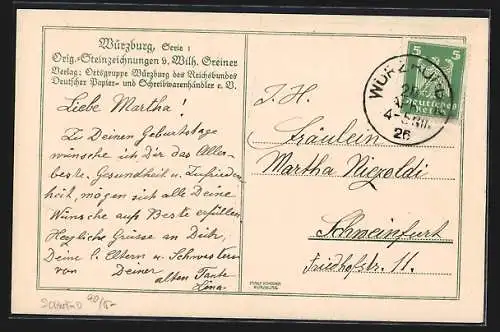 Würzburg, Serie 1
Orig.-Steinzeichnungen v. Wilh. Greiner
Verlag: Ortsgruppe Würzburg des Reichsbundes
Deutscher Papier- und Schreibwarenhändler e. V.
Liebe Martha!
Zu Deinen Geburtstage
wünsche ich Dir das Aller-
beste. Gesundheit u. Zufrieden-
heit, mögen sich alle Deine
Wünsche aufs Beste erfüllen.
Herzliche Grüsse an Dich,
Deine l. Eltern u. Schwestern
von Deiner
alten Tante
Lina.
5 5
WÜRZBURG
4-5 NM.
26
Deutsches
Reich
I. H.
Fräulein
Martha Niezoldi
Schweinfurt
Friedhofstr. 11.
WÜRZBURG